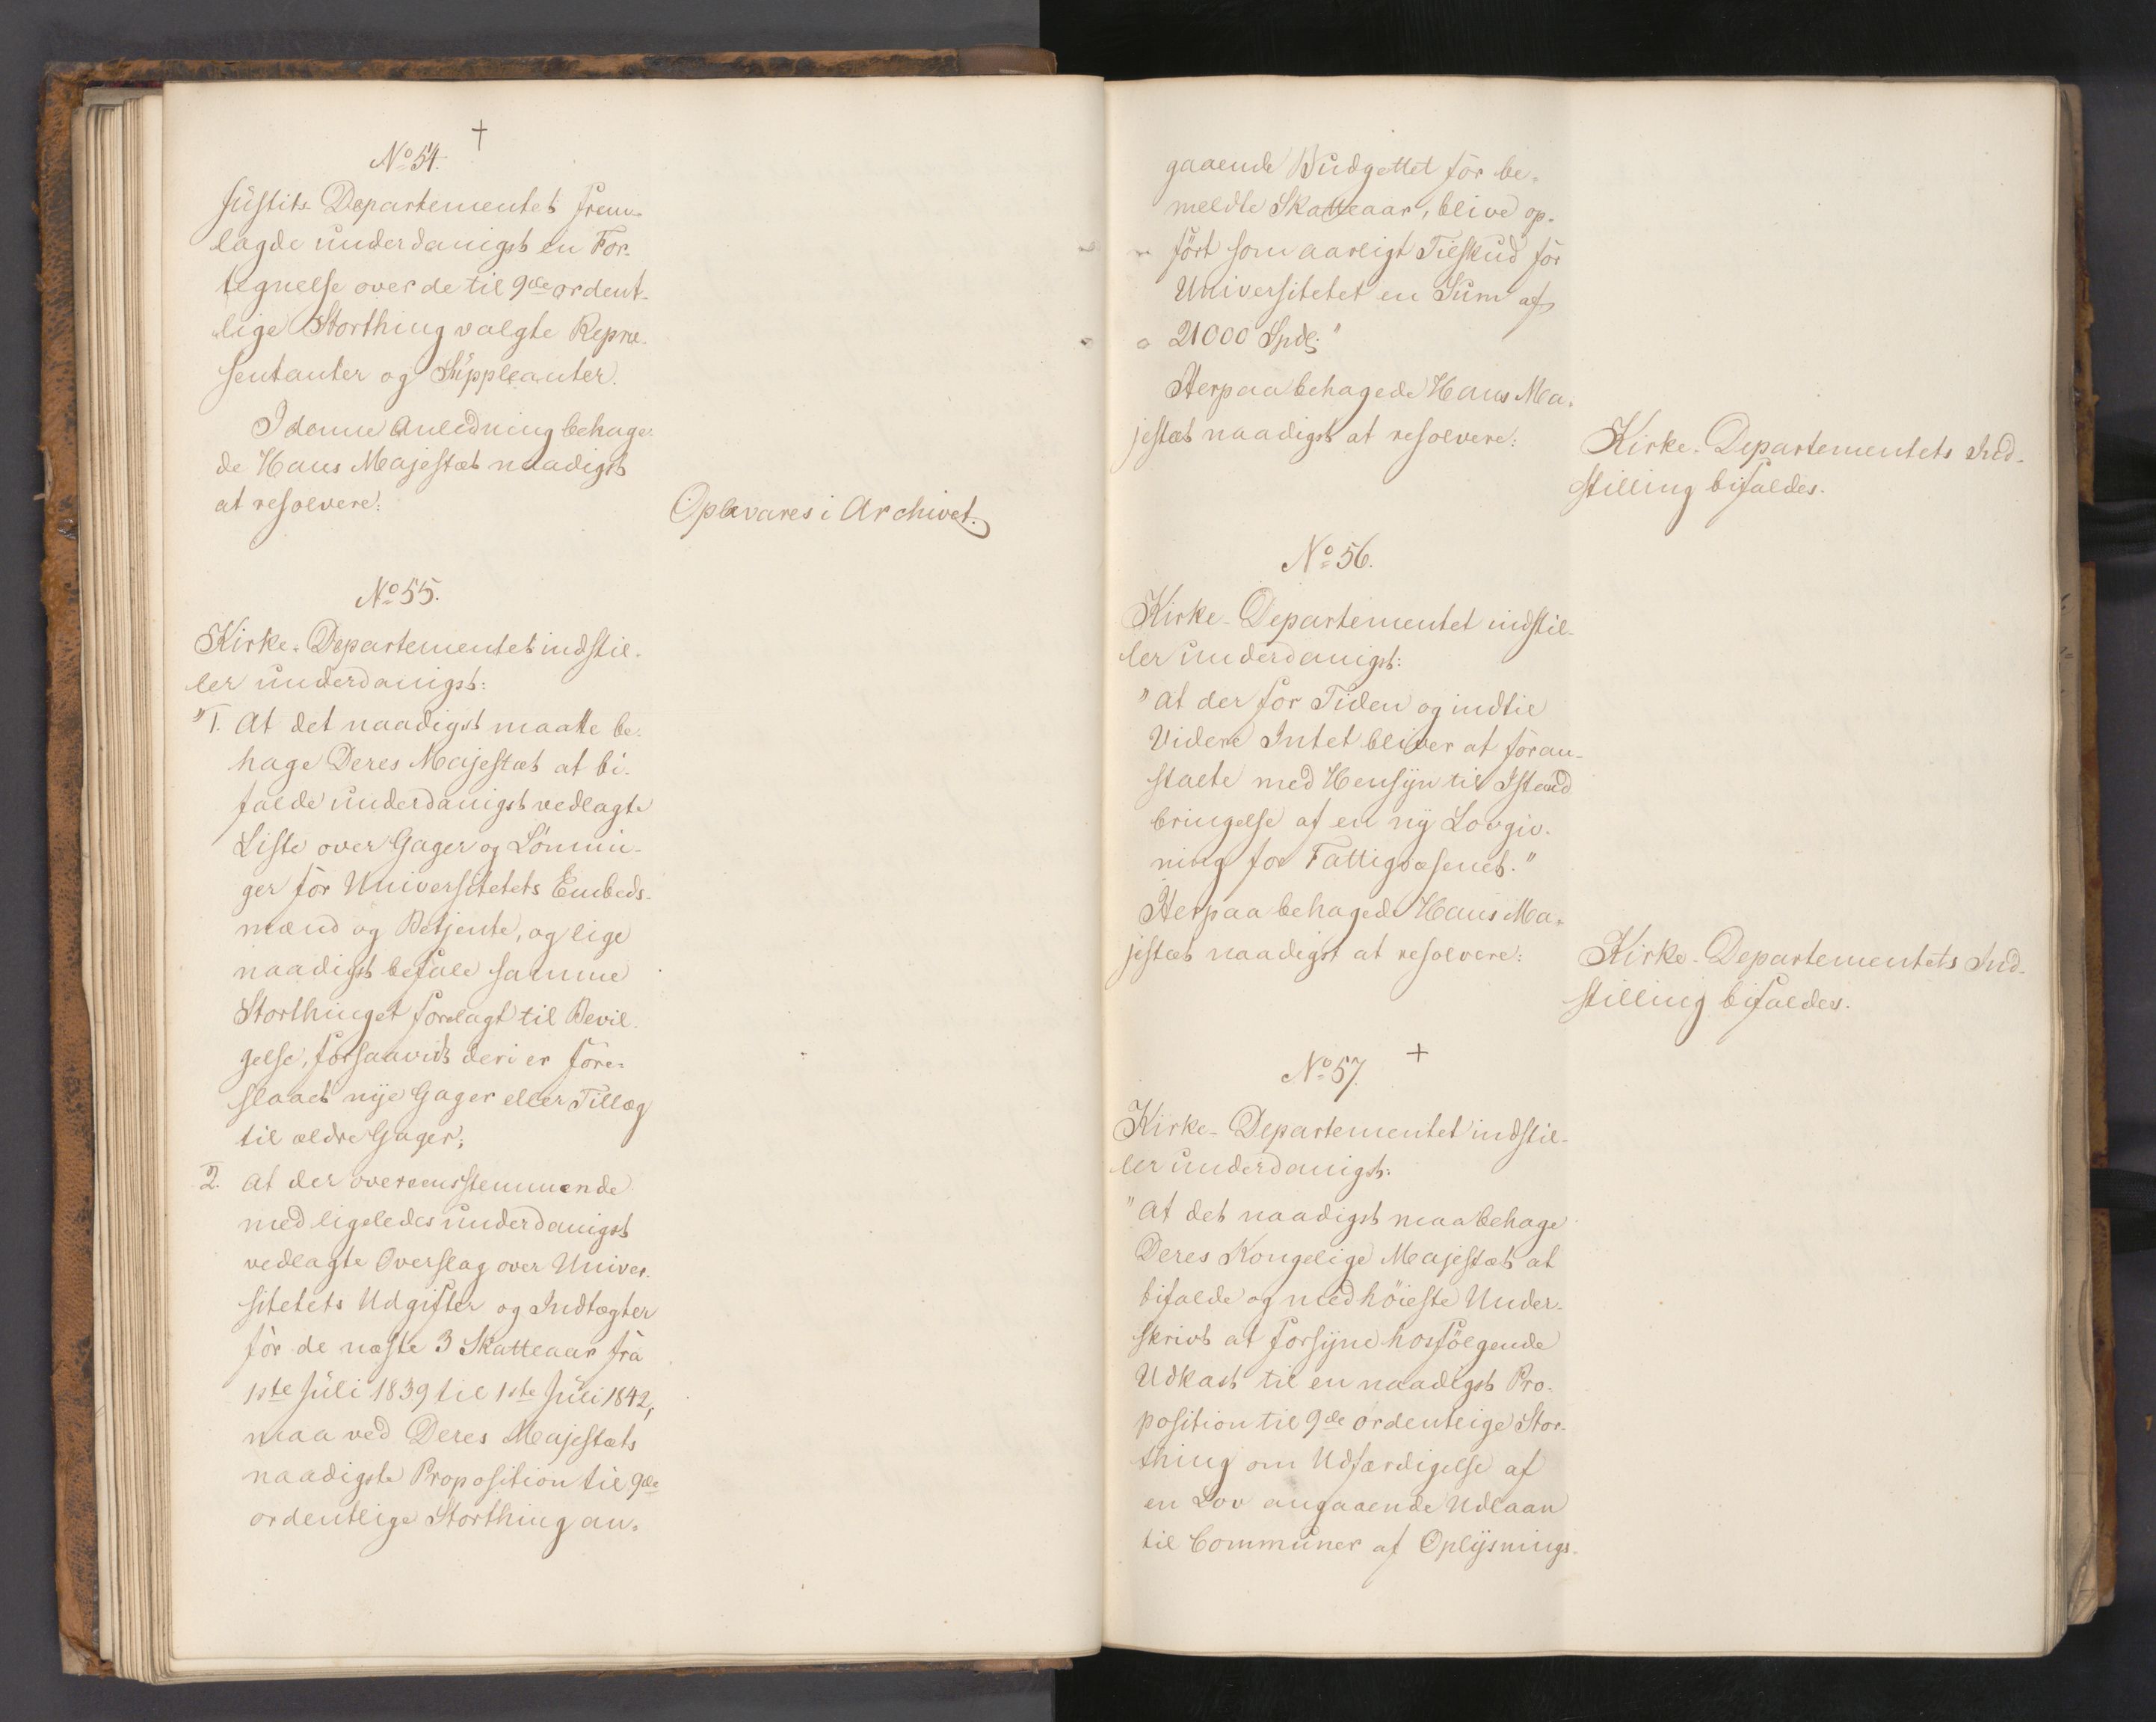 †
No 54.
Justits-Departementet frem-
lagde underdanigst en For-
tegnelse over de til 9de ordent-
lige Storthing valgte Repræ-
sentanter og Suppleanter.
I denne Anledning behage-
de Hans Majestæt naadigst
at resolvere:
Opbevares i Archivet.
No 55.
Kirke-Departementet indstil-
ler underdanigst:
"1. At det naadigst maatte be-
hage Deres Majestæt at bi-
falde underdanigst vedlagte
Liste over Gager og Lønnin-
ger for Universitetets Embeds-
mænd og Betjente, og lige
naadigst befale samme
Storthinget forelagt til Bevil-
gelse, forsaavidt deri er fore-
slaaet nye Gager eller Tillæg
til ældre Gager;
2. at der overeensstemmende
med ligeledes underdanigst
vedlagte Overslag over Univer-
sitetets Udgifter og Indtægter
for de næste 3 Skatteaar fra
1ste Juli 1839 til 1ste Juli 1842,
maa ved Deres Majestæts
naadigste Proposition til 9de
ordentlige Storthing an-
gaaende Budgettet for be-
meldte Skatteaar, blive op-
ført som aarligt Tilskud for
Universitetet en Sum af
21000 Spdl;"
Herpaa behagede Hans Ma-
jestæt naadigst at resolvere:
Kirke-Departementets Ind-
stilling bifaldes.
No 56.
Kirke-Departementet indstil-
ler underdanigst:
"at der for Tiden og indtil
Videre Intet bliver at foran-
stalte med Hensyn til Istand
bringelse af en ny Lovgiv-
ning for Fattigvæsenet."
Herpaa behagede Hans Ma-
jestæt naadigst at resolvere:
Kirke-Departementets Ind-
stilling bifaldes.
No 57. +
Kirke-Departementet indstil-
ler underdanigst:
"at det naadigst maa behage
Deres Kongelige Majestæt at
bifalde og med høieste Under-
skrivt at forsyne hosfølgende
Udkast til en naadigst Pro-
position til 9de ordentlige Stor-
thing om Udfærdigelse af
en Lov angaaende Udlaan
til Communer af Oplysnings-